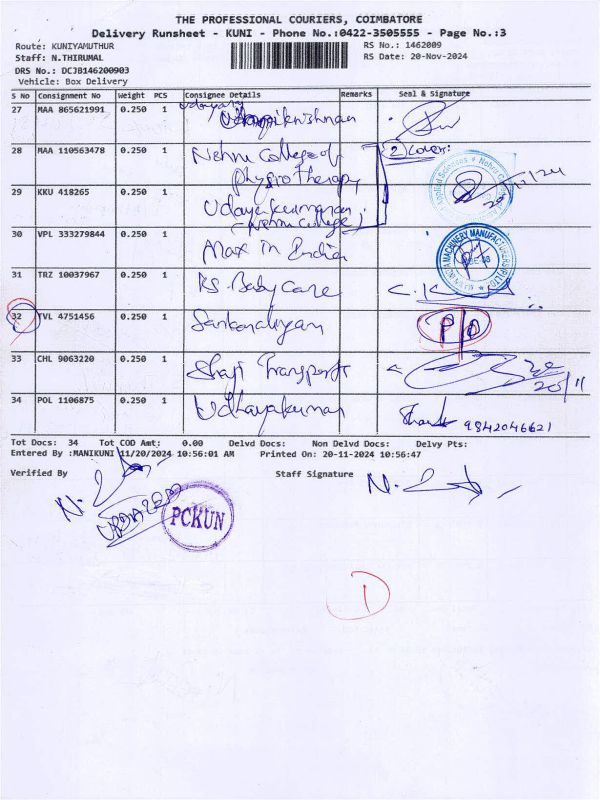 THE PROFESSIONAL COURIERS, COIMBATORE
Delivery Runsheet - KUNI - Phone No.:0422-3505555 - Page No.:3
Route: KUNIYAMUTHUR RS No.: 1462009
Staff: N.THIRUMAL RS Date: 20-Nov-2024
DRS No.: DCJB146200903
Vehicle: Box Delivery
S No Consignment No Weight PCS Consignee Details Remarks Seal & Signature
27 MAA 865621991 0.250 1
28 MAA 110563478 0.250 1 Nehru College of 2 Cover:
Physio Therapy 20/11/24
29 KKU 418265 0.250 1 Udayakumaran
(Nehru College)
30 VPL 333279844 0.250 1 Max in India
31 TRZ 10037967 0.250 1 KS Baby Care
32 TVL 4751456 0.250 1 Sankaralayam P/D
33 CHL 9063220 0.250 1 Shaji Transports 20/11
34 POL 1106875 0.250 1 Udhayakumar 9842046621
Tot Docs: 34 Tot COD Amt: 0.00 Delvd Docs: Non Delvd Docs: Delvy Pts:
Entered By :MANIKUNI 11/20/2024 10:56:01 AM Printed On: 20-11-2024 10:56:47
Verified By Staff Signature
PCKUN
1